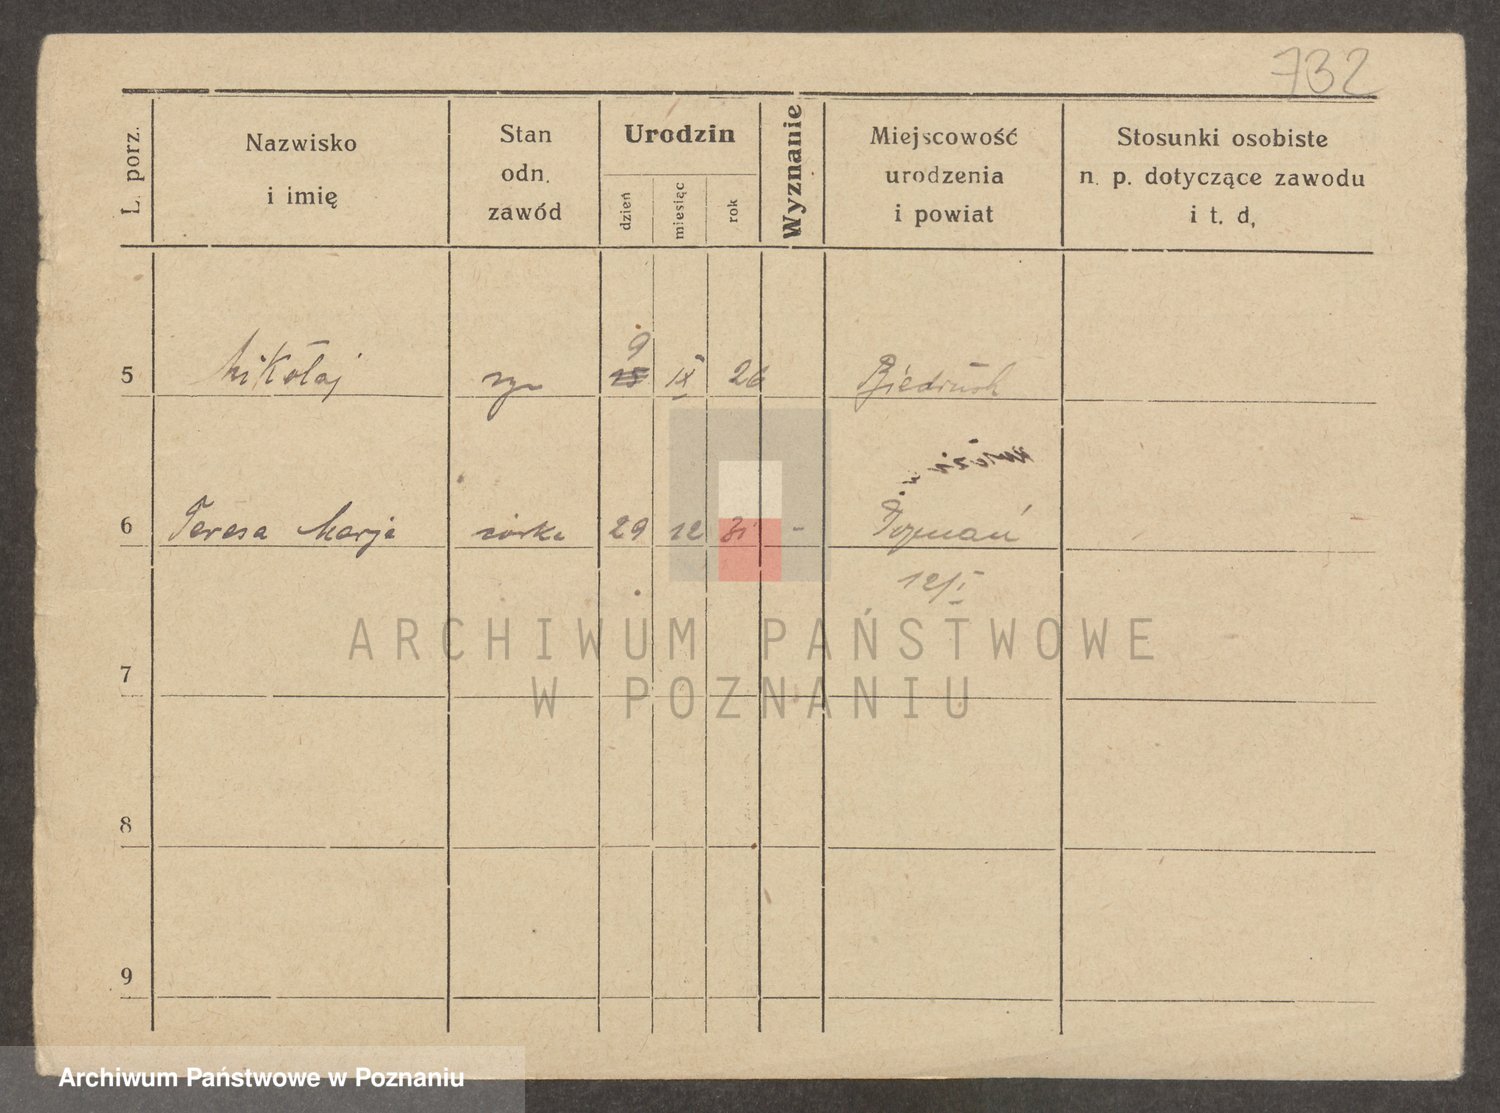 732
L. porz.
Nazwisko
i imię
Stan
odn.
zawód
Urodzin
dzień
miesiąc
rok
Wyznanie
Miejscowość
urodzenia
i powiat
Stosunki osobiste
n. p. dotyczące zawodu
i t. d,
9
5 Mikołaj 15 IX 26 Biedrusk
6 Teresa Marja córka 29 12 31 - Poznań
12/I
7
8
9
ARCHIWUM PAŃSTWOWE
W POZNANIU
Archiwum Państwowe w Poznaniu